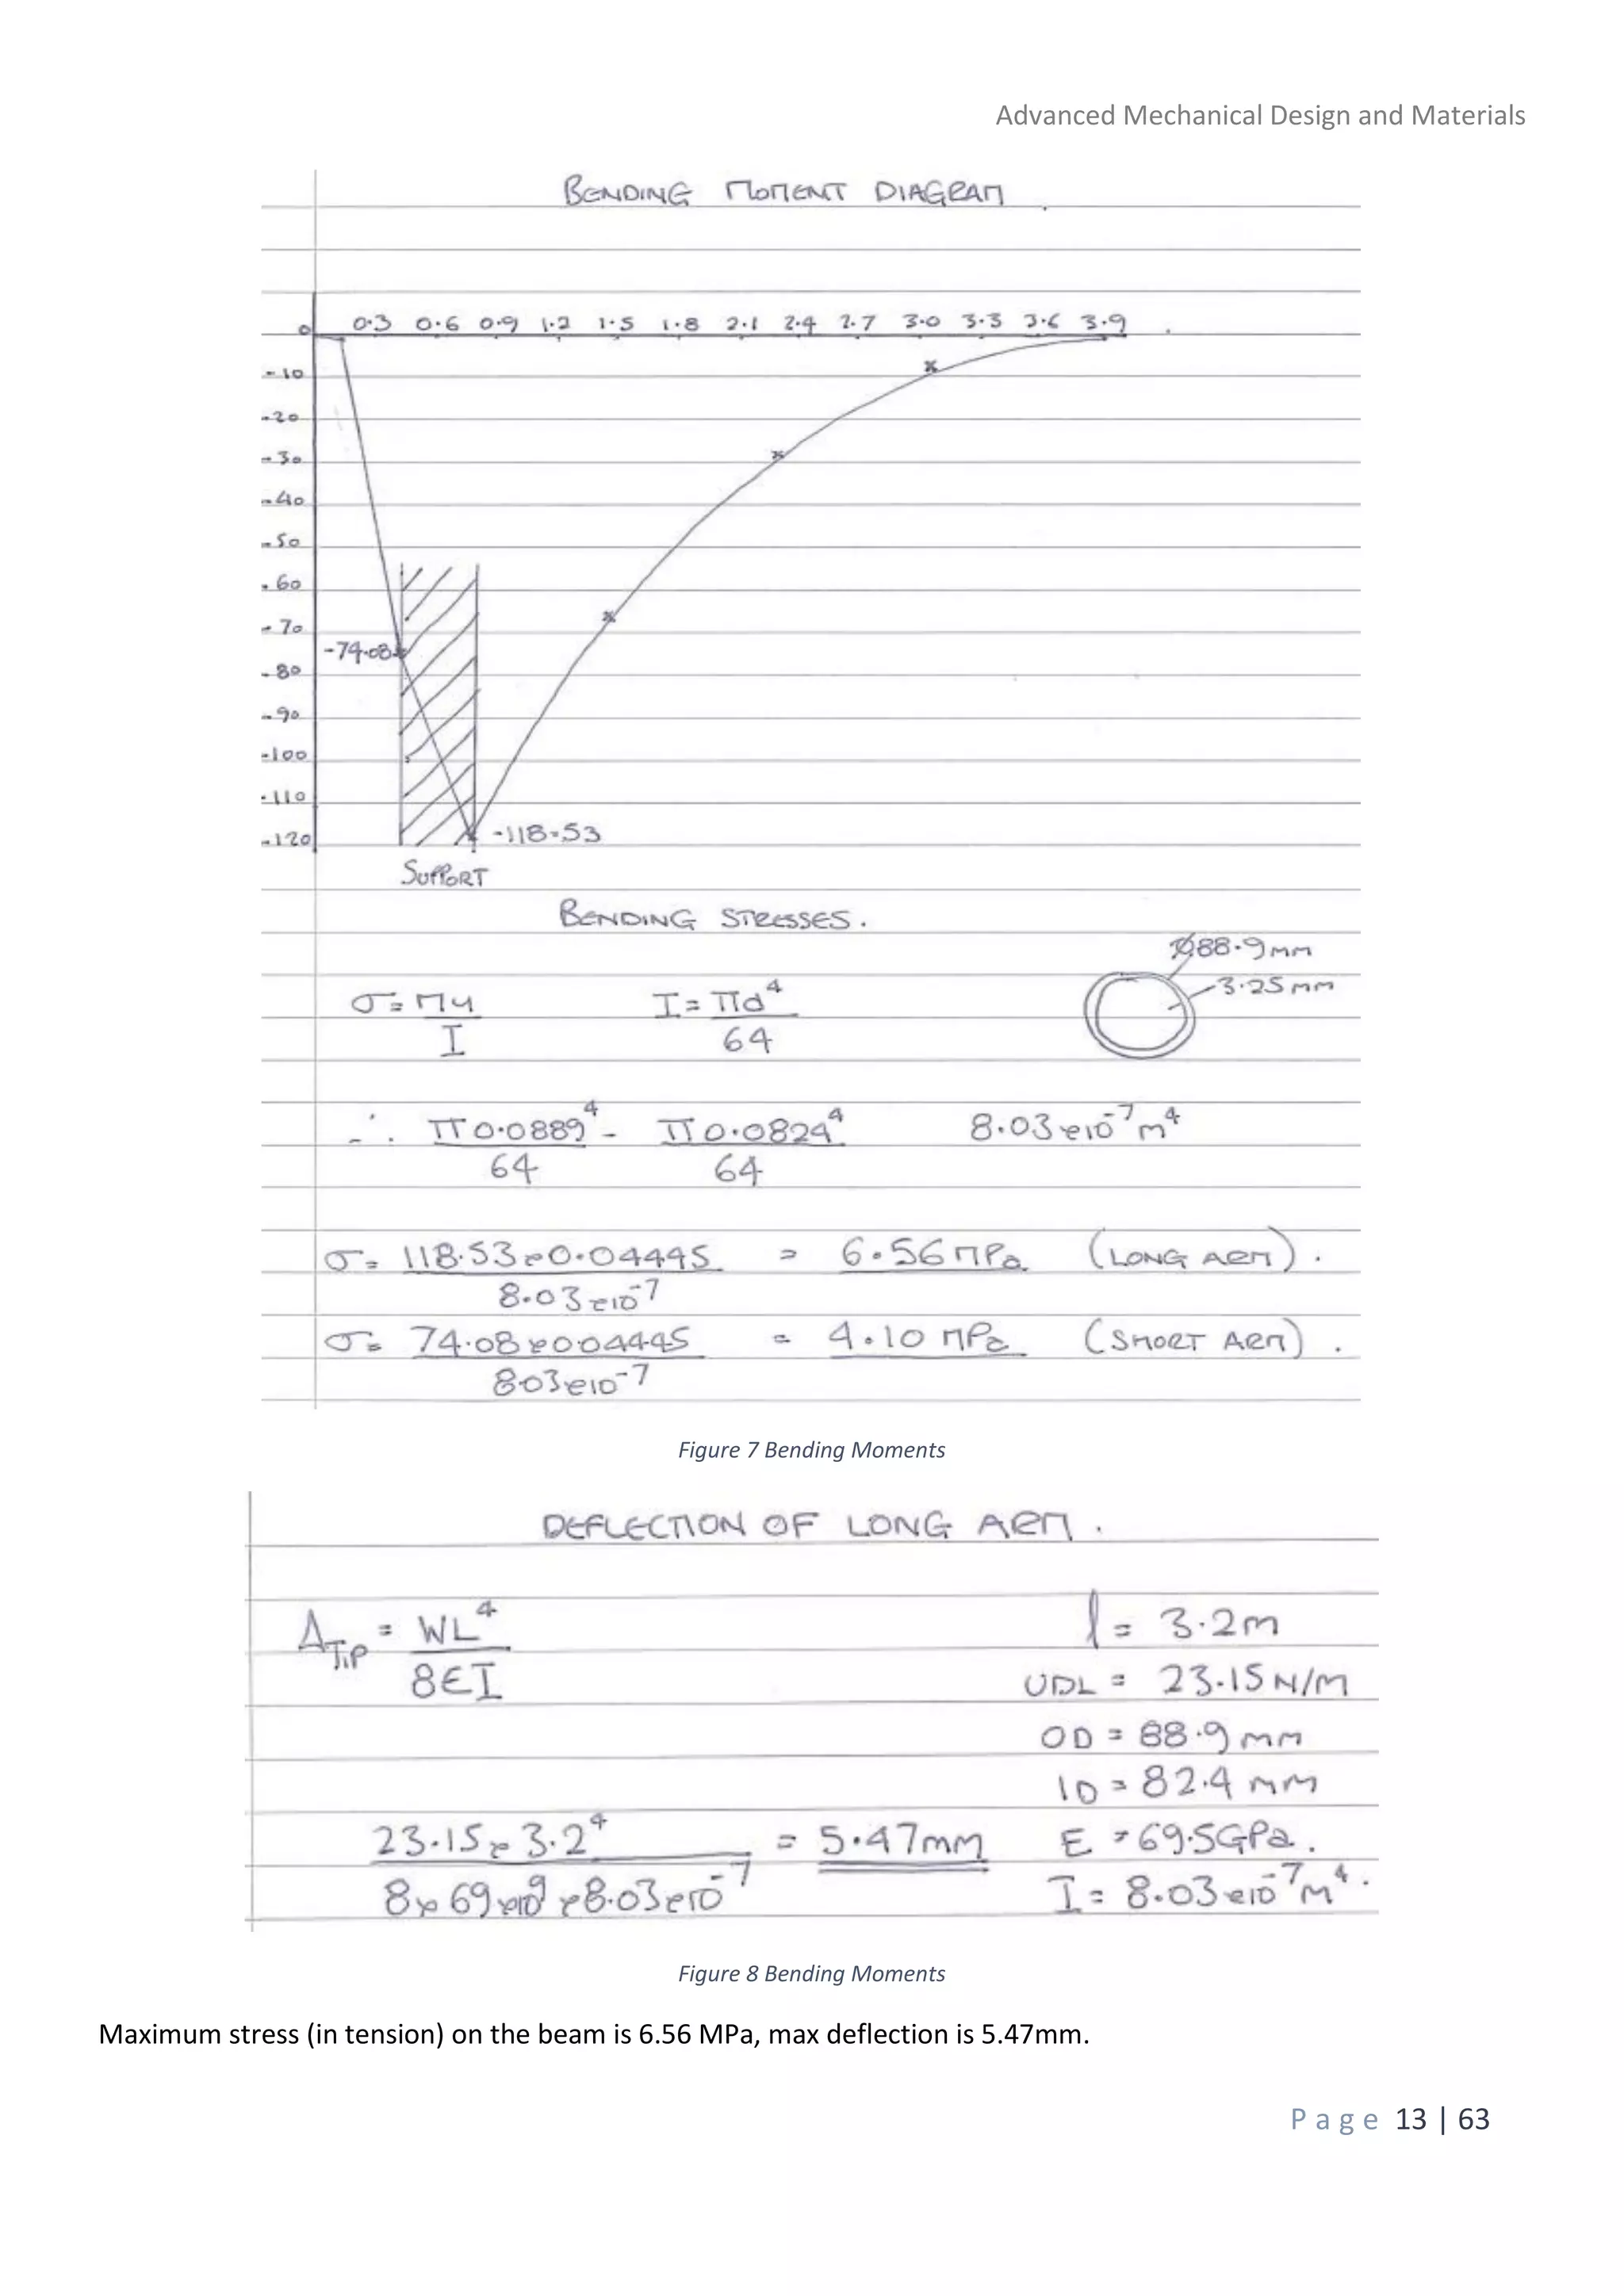 Advanced Mechanical Design and Materials
BENDING MOMENT DIAGRAM.
0 0.3 0.6 0.9 1.2 1.5 1.8 2.1 2.4 2.7 3.0 3.3 3.6 3.9
-10
-20
-30
-40
-50
-60
-70
-74.08
-80
-90
-100
-110
-120
-118.53
SUPPORT
BENDING STRESSES.
Ø88.9mm
3.25mm
σ = My/I I = πd⁴/64
∴ π0.0889⁴/64 - π0.0824⁴/64 8.03x10⁻⁷m⁴
σ = 118.53x0.04445/8.03x10⁻⁷ = 6.56MPa (LONG ARM).
σ = 74.08x0.04445/8.03x10⁻⁷ = 4.10MPa (SHORT ARM).
Figure 7 Bending Moments
DEFLECTION OF LONG ARM.
Δ TIP = WL⁴/8EI l = 3.2m
UDL = 23.15N/M
OD = 88.9mm
ID = 82.4mm
23.15x3.2⁴/8x69x10⁹x8.03x10⁻⁷ = 5.47mm E = 69.5GPa.
I = 8.03x10⁻⁷m⁴.
Figure 8 Bending Moments
Maximum stress (in tension) on the beam is 6.56 MPa, max deflection is 5.47mm.
Page 13 | 63